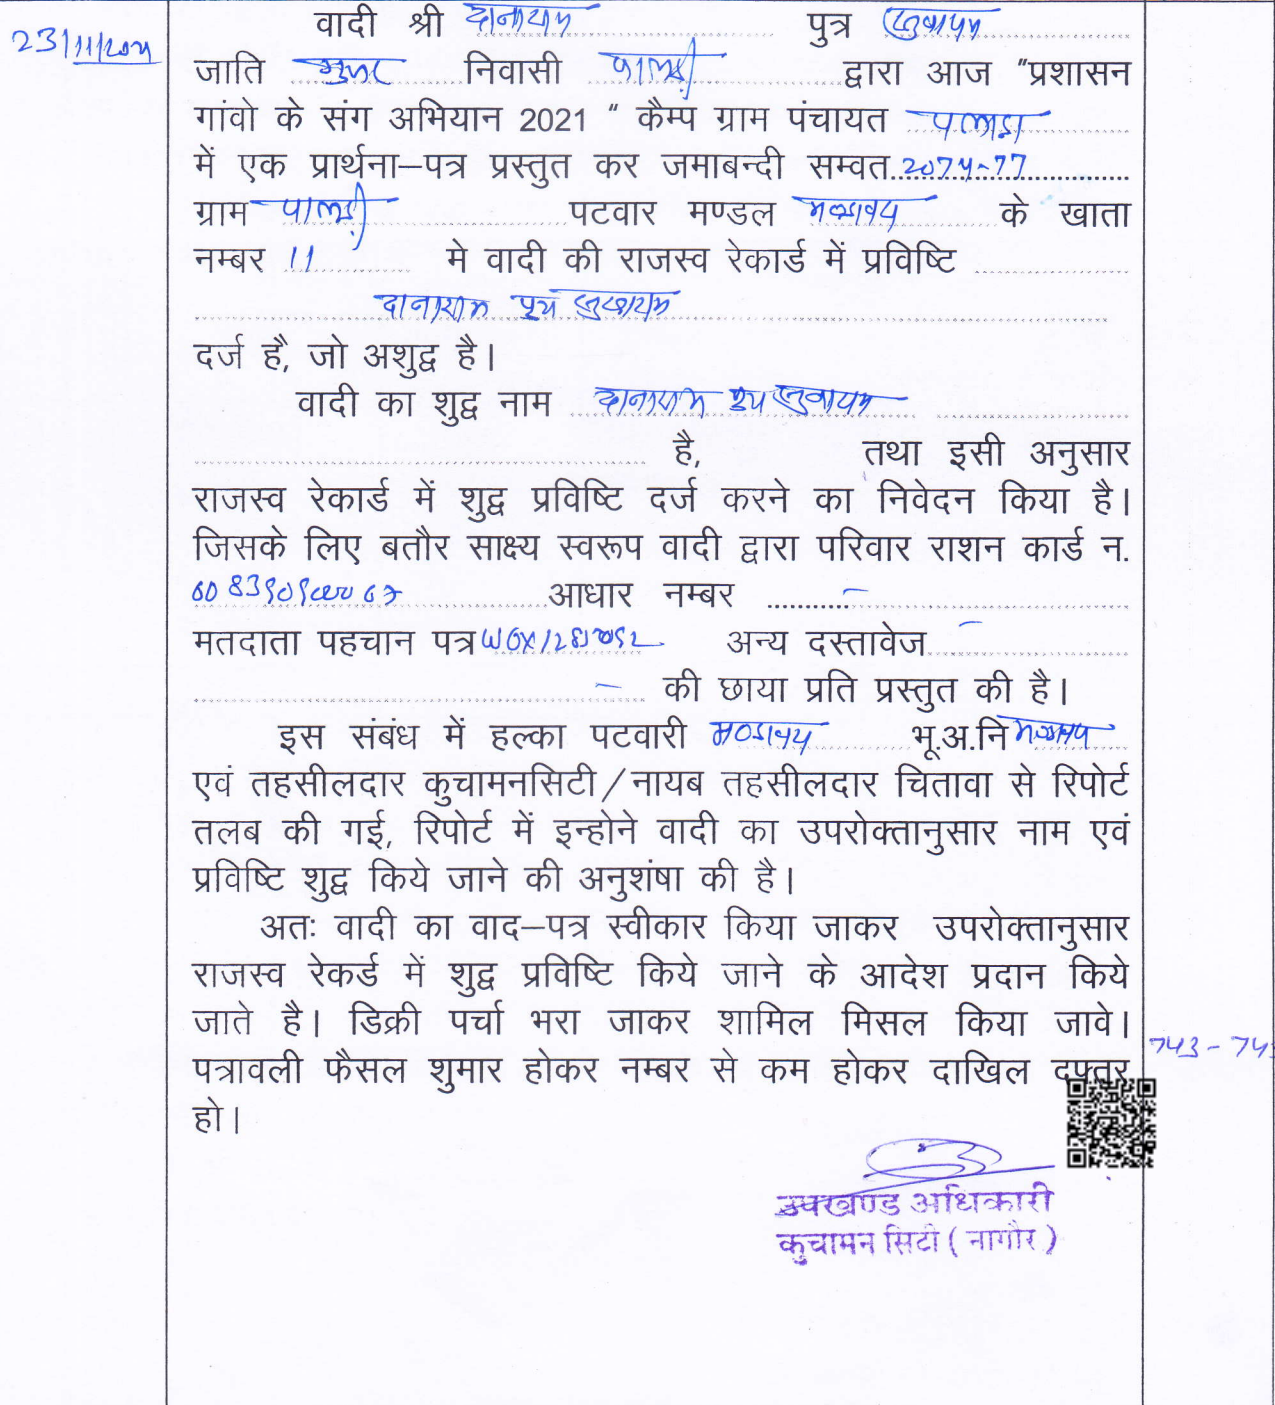 23/11/2021
वादी श्री दानाराम पुत्र
जाति गुर्जर निवासी पाल्डी द्वारा आज "प्रशासन
गांवो के संग अभियान 2021 " कैम्प ग्राम पंचायत पलाडा
में एक प्रार्थना–पत्र प्रस्तुत कर जमाबन्दी सम्वत 2074-77
ग्राम पाल्डी पटवार मण्डल के खाता
नम्बर 11 मे वादी की राजस्व रेकार्ड में प्रविष्टि
दानाराम पुत्र
दर्ज है, जो अशुद्व है।
वादी का शुद्व नाम दानाराम पुत्र
है, तथा इसी अनुसार
राजस्व रेकार्ड में शुद्व प्रविष्टि दर्ज करने का निवेदन किया है।
जिसके लिए बतौर साक्ष्य स्वरूप वादी द्वारा परिवार राशन कार्ड न.
आधार नम्बर –
मतदाता पहचान पत्र अन्य दस्तावेज –
– की छाया प्रति प्रस्तुत की है।
इस संबंध में हल्का पटवारी भू.अ.नि
एवं तहसीलदार कुचामनसिटी/नायब तहसीलदार चितावा से रिपोर्ट
तलब की गई, रिपोर्ट में इन्होने वादी का उपरोक्तानुसार नाम एवं
प्रविष्टि शुद्व किये जाने की अनुशंषा की है।
अतः वादी का वाद–पत्र स्वीकार किया जाकर उपरोक्तानुसार
राजस्व रेकर्ड में शुद्व प्रविष्टि किये जाने के आदेश प्रदान किये
जाते है। डिक्री पर्चा भरा जाकर शामिल मिसल किया जावे।
743-74
पत्रावली फैसल शुमार होकर नम्बर से कम होकर दाखिल दफ्तर
हो।
उपखण्ड अधिकारी
कुचामन सिटी ( नागौर )